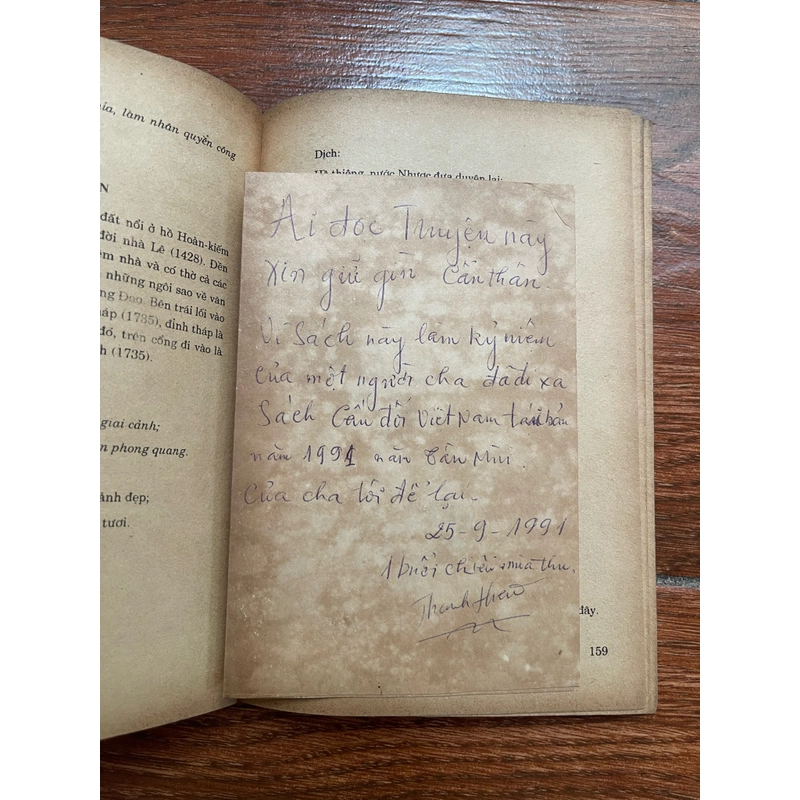 ỉa, làm nhân quyền công
N
đất nổi ở hồ Hoàn-kiếm
đời nhà Lê (1428). Đền
m nhà và có thờ cả các
những ngôi sao về văn
ng Đạo. Bên trái lối vào
háp (1735), đỉnh tháp là
đổ, trên cổng đi vào là
h (1735).
giai cảnh;
n phong quang.
ảnh đẹp;
tươi.
Dịch:
nước Nhược đưa duyên lại;
Ai đọc Truyện này
xin giữ gìn Cẩn thân.
Vì Sách này làm kỷ niêm
của một người cha đã đi xa
Sách Cấu đối Việt Nam tái bản
năm 1991 năm Tân Mùi.
Của cha tôi để lại.
25-9-1991
1 buổi chiều mùa thu.
đây.
159